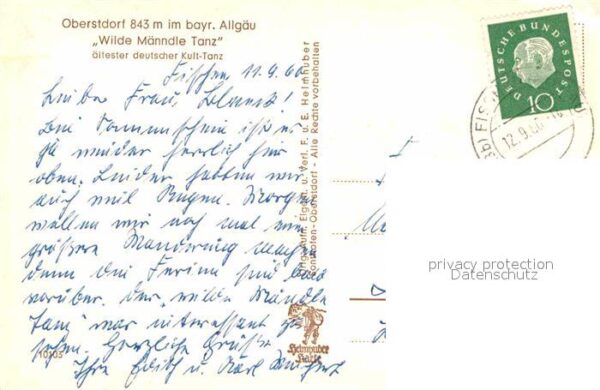 Oberstdorf 843 m im bayr. Allgäu
„Wilde Männdle Tanz"
ältester deutscher Kult-Tanz
Fischen 11.9.60
Liebe Frau Blanck!
Bei Sonnenschein ist es
ja wieder herrlich hier
oben. Leider hatten wir
auch viel Regen. Morgen
wollen wir noch mal eine
größere Wanderung machen
denn die Ferien sind bald
vorüber. Der „wilde Mändle
Tanz" war interessant zu
sehen. Herzliche Grüße
Ihre Edith u. Karl
10105
Originalaufn., Eigent. u. Verl. F. u. E. Heimhuber
Sonthofen-Oberstdorf - Alle Rechte vorbehalten
Heimhuber
Karte
DEUTSCHE BUNDESPOST
10
FISCH
12.9.60
privacy protection
Datenschutz